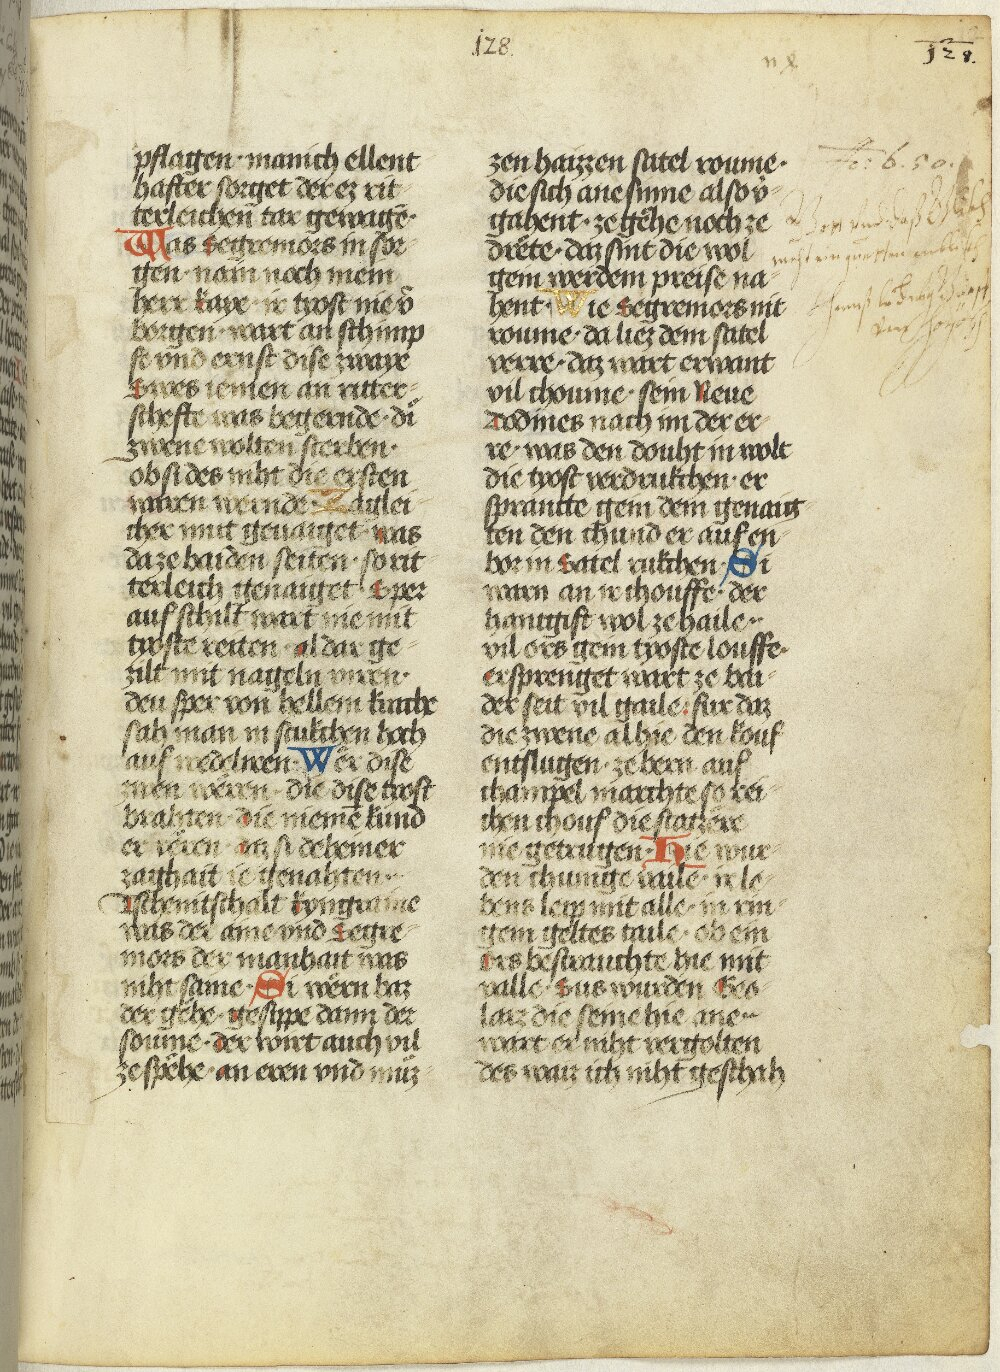 128
128.
pflagen · manich ellent
hafter sorget der ez rit
terleichen tar gewagē ·
Was segremors in sor
gen · nam noch mein
herr kaye · ir tyost nie v̊
borgen · wart an schimp
fe vnd ernst dise zwaye
swes iemen an ritter
schefte was begernde · di
zwene wolten sterben ·
ob si des niht die ersten
waren wernde · Zaglei
cher mut geuaiget · was
da ze baiden seiten · so rit
terleich genaiget · sper
auf schilt wart nie mit
tyoste reiten · al dar ge
zilt mit nageln viren ·
den sper von hellem krache
sah man in stukchen hoch
auf wedelnen · Wer dise
zwen weren · die dise tyost
brahten · die niemē kund
er veren · daz si deheiner
zaghait ie genahten ·
Tschenitschalt kyngraine
was der aine vnd segre
mors der manhait was
niht saine · Si wern baz
der gebe · gesippe dann der
soume · der wirt auch vil
ze spehe · an eren vnd müz
zen haizzen satel roume ·
die sich ane sinne also v̊
gahent · ze gehe noch ze
drete · daz sint die wol
gein werdem preise na
hent · Wie segremors nit
roume · da liez dem satel
verre · daz wart erwant
vil choume · sein Neue
dodines nach im der er
re · was den douht in wolt
die tyost verdrukchen · er
sprancte gein dem genaig
ten den chund er auf en
bor in satel rukchen · Si
warn an ir chouffe · der
hantgift wol ze haile ·
vil ors gein tyoste louffe ·
ersprenget wart ze bai
der seit vil gaile · fur daz
die zwene alhie den kouf
entslugen · ze bern auf
champfel marchte so rei
chen chouf die statzere
nie getrugen · Hie wur
den chunige vaile · ir le
bens leip mit alle · in rin
gem geltes taile · ob ein
ors bestrauchte hie mit
valle · sus wurden Beo
latz die seine hie ane ·
wart er niht vergolten
des waiz ich niht geschah